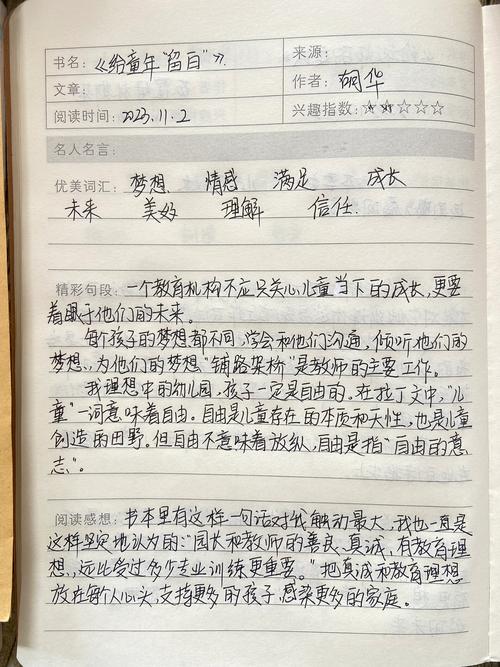 书名:《给童年"留白"》
来源:
文章:
作者:胡华
阅读时间:2023.11.2
兴趣指数:☆☆☆☆☆
名人名言:
优美词汇:梦想 情感 满足 成长
未来 美好 理解 信任.
精彩句段:一个教育机构不应只关心儿童当下的成长,更要
着眼于他们的未来。
每个孩子的梦想都不同,学会和他们沟通,倾听他们的
梦想、为他们的梦想"铺路架桥"是教师的主要工作。
我理想中的幼儿园,孩子一定是自由的。在拉丁文中,"儿
童"一词意味着自由。自由是儿童存在的本质和天性,也是儿童
创造的田野。但自由不意味着放纵,自由是指"自由的意
志"。
阅读感想:书本里有这样一句话对我触动最大,我也一直是
这样坚定地认为的:"园长和教师的善良、真诚、有教育理
想,远比受过多少专业训练更重要。"把真诚和教育理想
放在每个人心头,支持更多的孩子,感染更多的家庭。